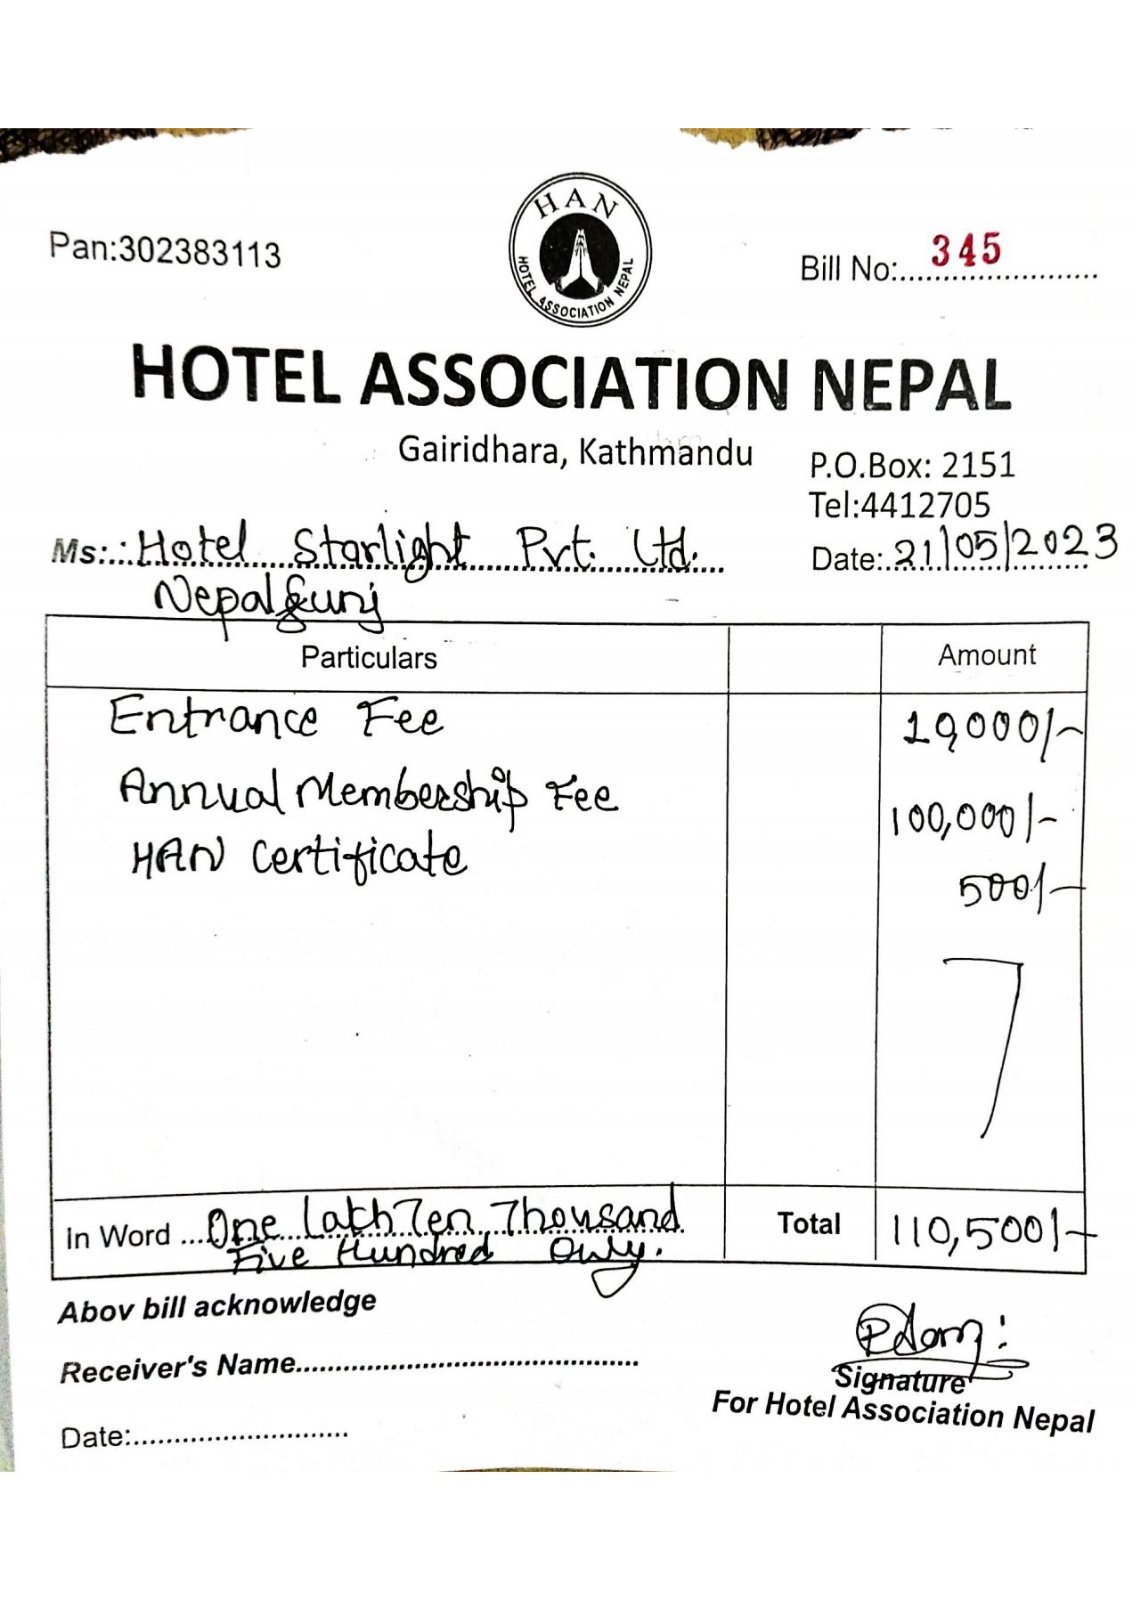 HAN
HOTEL ASSOCIATION NEPAL
Pan:302383113
Bill No:.... 345
HOTEL ASSOCIATION NEPAL
Gairidhara, Kathmandu
P.O.Box: 2151
Tel:4412705
Ms:..: Hotel Starlight Pvt. Ltd.
Date: 21/05/2023
Nepalgunj
Particulars Amount
Entrance Fee 10,000/-
Annual Membership Fee 100,000/-
HAN Certificate 500/-
In Word ... One Lakh Ten Thousand
Five Hundred Only.
Total 110,500/-
Abov bill acknowledge
Receiver's Name..........
Signature
For Hotel Association Nepal
Date:..........